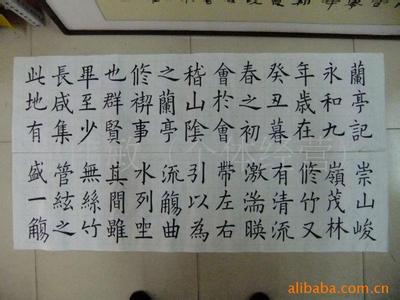 蘭亭記
永和九
年歲在
癸丑暮
春之初
會於會
稽山陰
之蘭亭
修禊事
也群賢
畢至少
長咸集
此地有
崇山峻
嶺茂林
修竹又
有清流
激湍暎
帶左右
引以為
流觴曲
水列坐
其間雖
無絲竹
管絃之
盛一觴
alibaba.com.cn